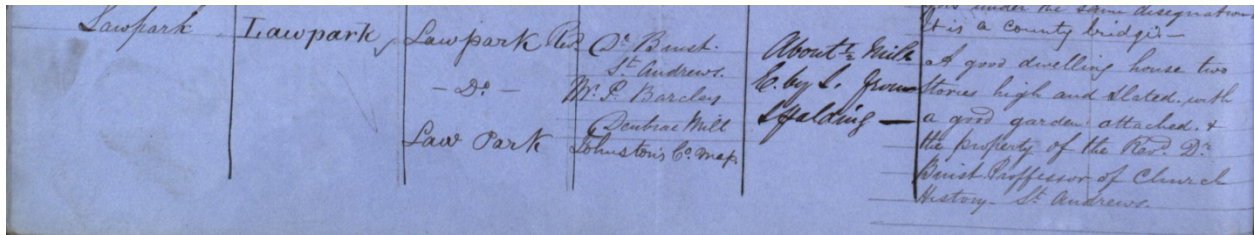 Lawpark
Lawpark
Lawpark
- Do. -
Law Park
Revd. Dr. Buist.
St. Andrews.
Mr. P. Barclay
Denbrae Mill
Johnston's Co. Map
About ½ Mile
E. by S. from
Spalding —
under the same designation
It is a county bridge —
A good dwelling house two
Stories high and slated, with
a good garden attached. &
the property of the Revd. Dr.
Buist Proffessor of Church
History - St. Andrews.